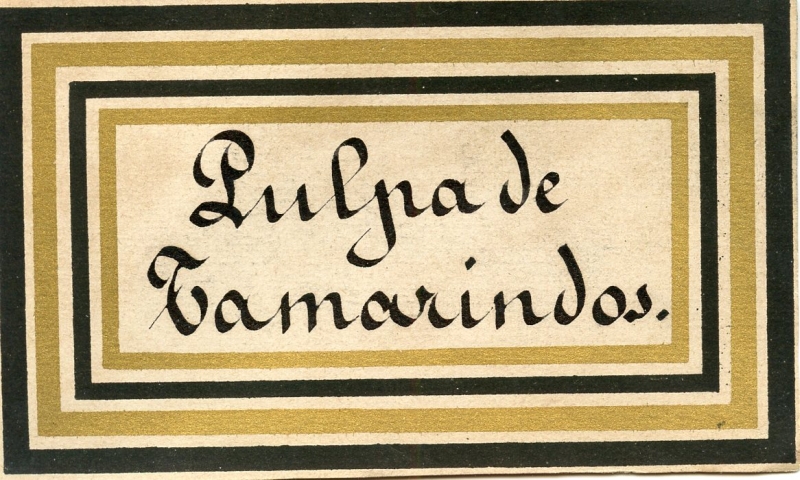 Pulpa de
Tamarindos.